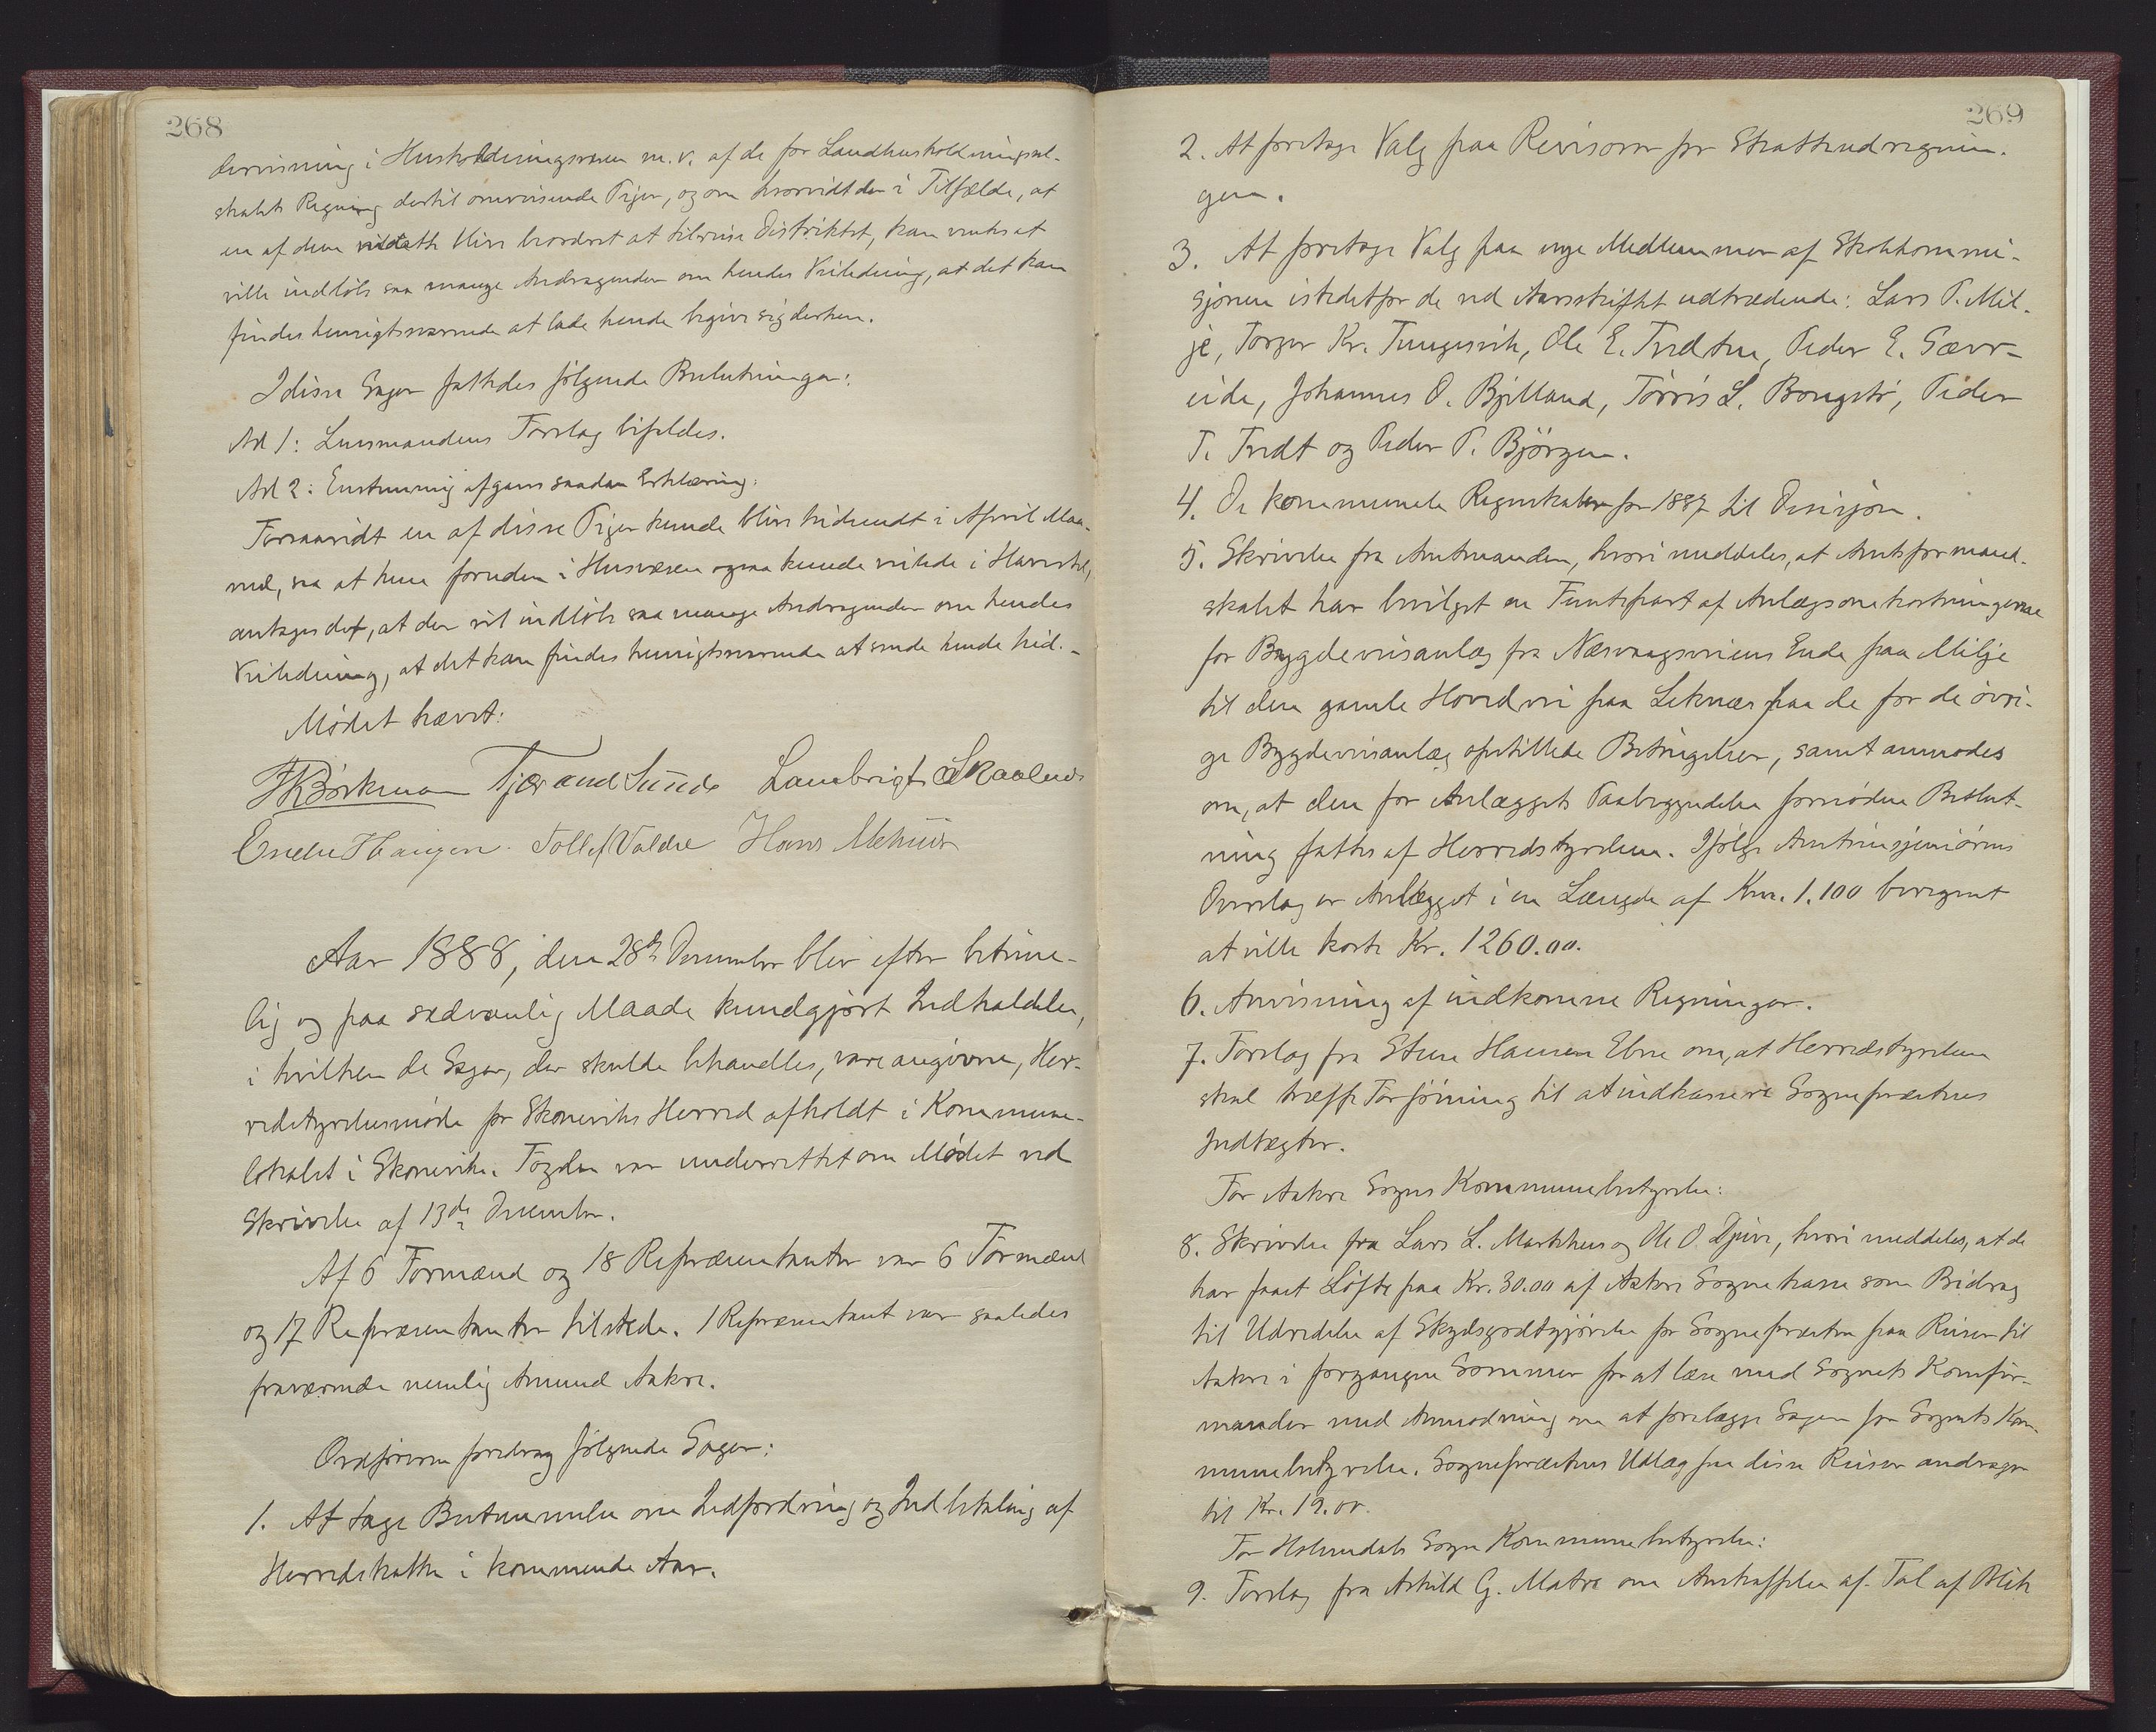 268
dervisning i Husholdningsvæsen m.v. af de for Landhusholdningssel-
skabets Regning dertil omreisende Piger, og om hvorvidt der i Tilfælde, at
en af dem blive beordret at tilreise Distriktet, kan ventes at
ville indløbe saa mange Andragender om hendes Veiledning, at det kan
findes hensigtsvarende at lade hende begive sig derhen.
I disse Sager fattedes følgende Beslutninger:
Ad 1: Lensmandens Forslag bifaldes.
Ad 2: Enstemmig afgaves saadan Erklæring:
Forsaavidt en af disse Piger kunde blive hidsendt i April Maa-
ned, saa at hun foruden i Husvæsen ogsaa kunde veilede i Havestel,
antages det, at der vil indløbe saa mange Andragender om hendes
Veiledning, at det kan findes hensigtsvarende at sende hende hid. -
Mødet hævet:
Tjerand Sunde Lambrigt Skaalnes
Endre Haugen. Tollef Valdre Hans Mehuus
Aar 1888, den 28de December blev efter betime-
lig og paa sædvanlig Maade kundgjørt Indkaldelse,
i hvilken de Sager, der skulde behandles, vare angivne, Her-
redstyrelsesmøde for Skoneviks Herred afholdt i Kommune-
lokalet i Skonevik. Fogden var underrettet om Mødet ved
Skrivelse af 13de December.
Af 6 Formænd og 18 Repræsentanter var 6 Formænd
og 17 Repræsentanter tilstede. 1 Repræsentant var saaledes
fraværende nemlig Amund Aakre.
Ordføreren foredrog følgende Sager:
1. At tage Bestemmelse om Indfordring og Indbetaling af
Herredskatten i kommende Aar.
269
2. At foretage Valg paa Revisorer for Skatteudregnin-
gen.
3. At foretage Valg paa nye Medlemmer af Skolekommi-
sjonen istedetfor de ved Aarsskiftet udtrædende: Lars P. Mil-
je, Torger Kr. Tungesvik, Ole E. Tvedtne, Peder E. Sævr-
eide, Johannes O. Bjelland, Tørris L. Bongstø, Peder
T. Tvedt og Peder P. Bjørgen.
4. De kommunale Regnskaber for 1887 til Desisjon.
5. Skrivelse fra Amtmanden, hvori meddeles, at Amtsformand-
skabet har bevilget en Femtepart af Anlægsomkostningerne
for Bygdeveisanlæg fra Næsvaagsveiens Ende paa Milje
til den gamle Hovedvei paa Leknæs paa de for de øvri-
ge Bygdeveisanlæg opstillede Betingelser, samt anmodes
om, at den for Anlæggets Paabegyndelse fornødne Beslut-
ning fattes af Herredstyrelsen. Ifølge Amtsinsjeniørens
Overslag er Anlægget i en Længde af Km. 1.100 beregnet
at ville koste Kr. 1260.00.
6. Anvisning af indkomne Regninger.
7. Forslag fra Steen Hansen Ebne om, at Herredstyrelsen
skal træffe Forføining til at indkassere Sognepræstens
Indtægter.
For Aakre Sogns Kommunebestyrelse:
8. Skrivelse fra Lars L. Markhus og Ole O. Djuve, hvori meddeles, at de
har faaet Løfte paa Kr. 30.00 af Aakre Sognekasse som Bidrag
til Udredelse af Skydsgodtgjørelse for Sognepræsten paa Reiser til
Aakre i forgangne Sommer for at læse med Sognets Konfir-
mander med Anmodning om at forelægge Sagen for Sognets Kom-
munebestyrelse. Sognepræstens Udlæg paa disse Reiser andrager
til Kr. 19.00.
For Holmedals Sogns Kommunebestyrelse:
9. Forslag fra Askild G. Matre om Anskaffelse af Tal af Blik